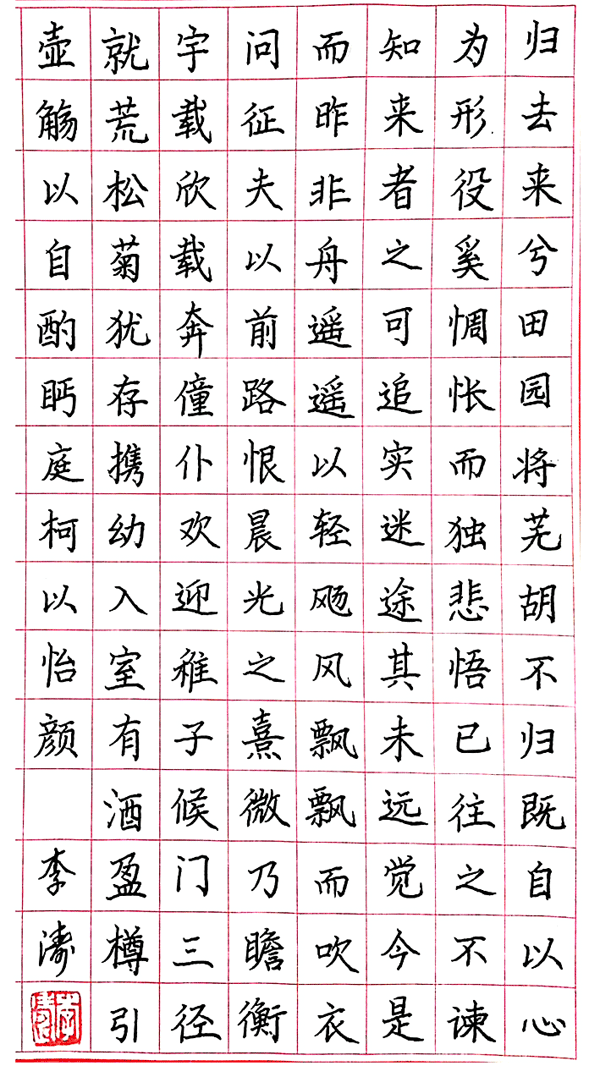 归去来兮田园将芜胡不归既自以心
为形役奚惆怅而独悲悟已往之不谏
知来者之可追实迷途其未远觉今是
而昨非舟遥遥以轻飏风飘飘而吹衣
问征夫以前路恨晨光之熹微乃瞻衡
宇载欣载奔僮仆欢迎稚子候门三径
就荒松菊犹存携幼入室有酒盈樽引
壶觞以自酌眄庭柯以怡颜 李涛